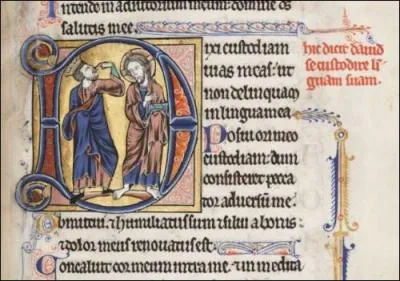 Intende in adiutorium meum domine ds
salutis mee.
Dixi custodiam
uias meas: ut
non delinquam
in lingua mea
Posui ori meo
custodiam: dum
consisteret pecca
tor aduersū me.
Obmutui: & humiliatus sum & silui a bonis
& dolor meus renouatus est.
Concaluit cor meum intra me. & in medita
hic dicit dauid
se custodire li
guam suam.